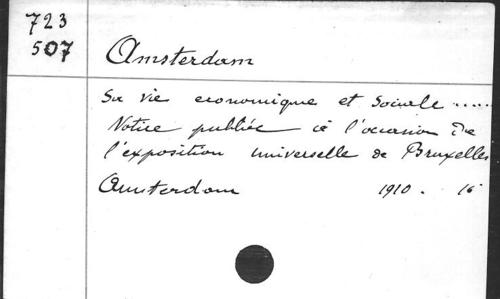 723
507
Amsterdam
Sa vie economique et sociale .....
Notice publiée à l'occasion de
l'exposition universelle de Bruxelles
Amsterdam 1910. 16